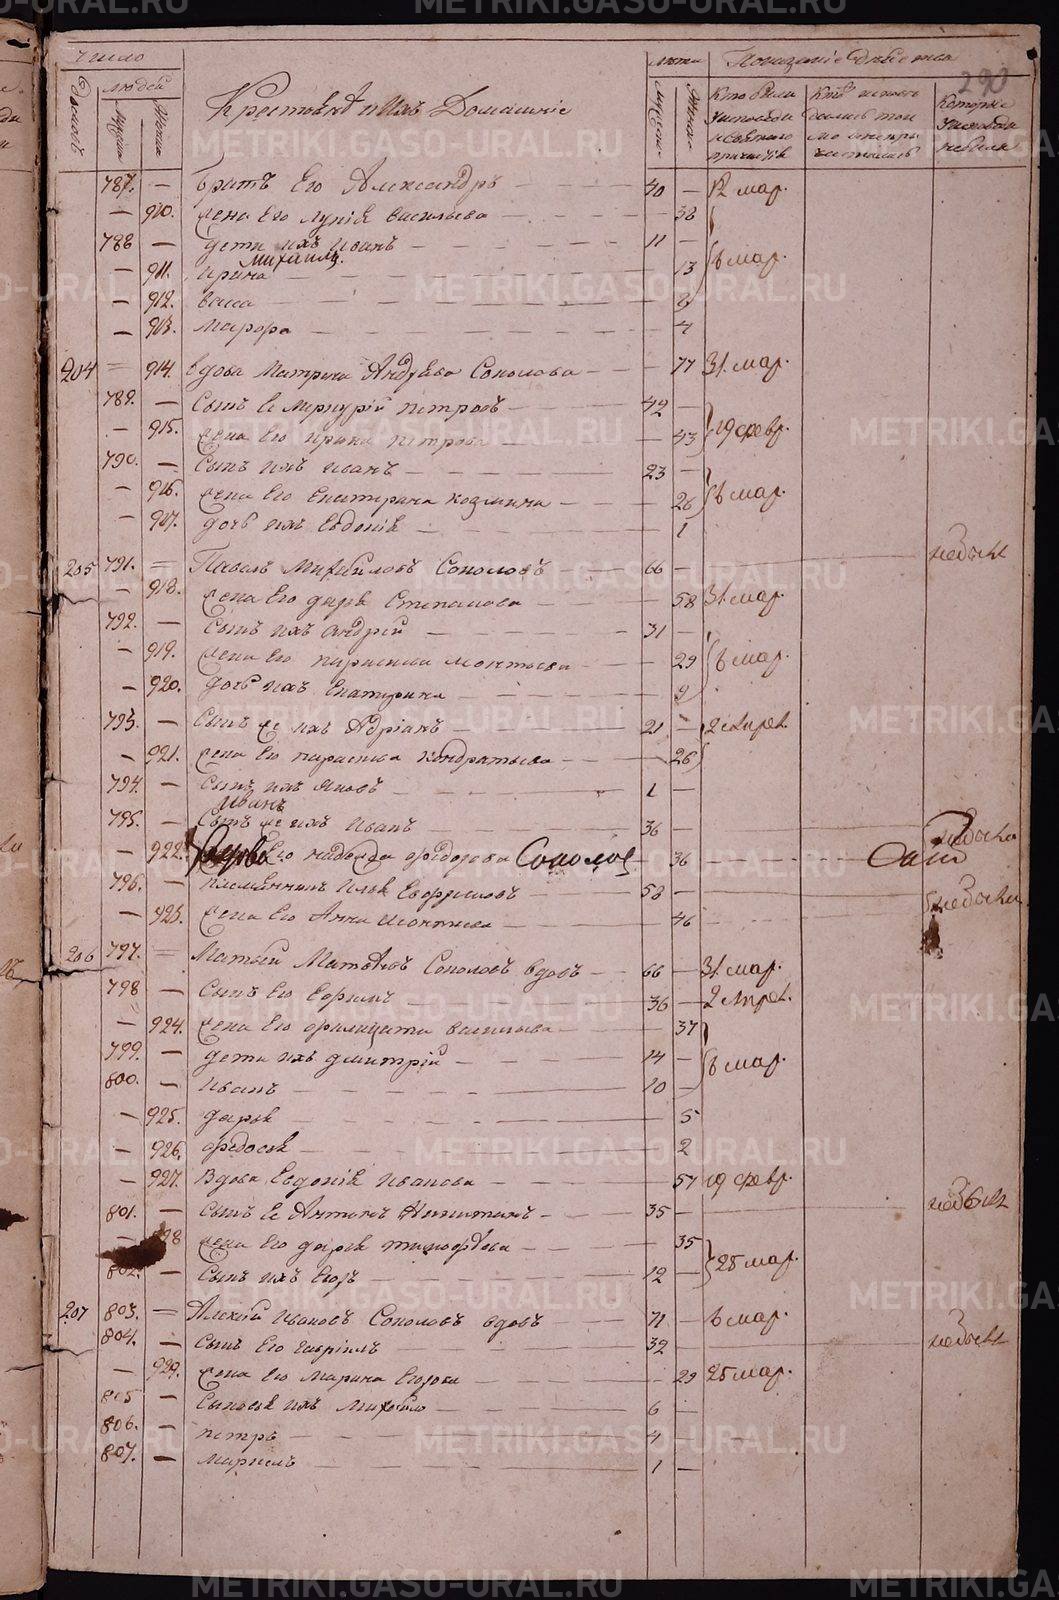 290
Число
Домовъ
людей
Мужска
Женска
Крестьянѣ и Ихъ Домашніе
лѣта
Мужска
Женска
Показаніе дѣйства
Кто были
у исповѣди
и святаго
причастія
Кто исповѣ
дались токмо
а не при
частились
Которые
у исповѣди
небыли
787. — братъ его Александръ — 40 — 12 мар.
— 910. жена Его Лукія васильева — 38
788 — дети ихъ Иванъ — 11 —
Михаилъ.
— 911. Ирина — 13 6 мар.
— 912. васса — 9
— 913. Мавра — 4
204 — 914. вдова Матрена Андрѣева Соколова — 77 31. мар.
789. — Сынъ Ее Меркурій петровъ — 42 —
— 915. жена Его Ирина петрова — 43 19 февр.
790. — Сынъ ихъ иванъ — 23 —
— 916. жена Его Екатерина козмина — 26 6 мар.
— 917. дочь ихъ Евдокія — 1
205 791. — Павелъ Михайловъ Соколовъ — 66 — небылъ
— 918. жена Его дарья Степанова — 58 31. мар.
792. — Сынъ ихъ андрей — 31 —
— 919. жена Его параскева леонтьева — 29 6 мар.
— 920. дочь ихъ Екатерина — 9
793. — Сынъ ихъ Адріанъ — 21 — 2 апрел.
— 921. жена Его параскева кондратьева — 26
794. — Сынъ ихъ Яковъ — 1 —
Иванъ
795. — Сынъ ихъ Иванъ — 36 — небыли
— 922. Его надежда федорова Соколов — 36
796. — племянникъ Илья Евфимовъ — 58 — небыли
— 923. жена Его Анна леонтьева — 46
206 797. — Матвей Матвѣевъ Соколовъ вдовъ — 66 — 31. мар.
798 — Сынъ Его Ефимъ — 36 — 2 апрел.
— 924. жена Его филицата васильева — 37
799. — дети ихъ дмитрій — 14 — 6 мар.
800. — иванъ — 10 —
— 925. дарья — 5
— 926. федосья — 2
— 927. вдова Евдокія Иванова — 57 19 февр.
801. — сынъ Ее Антонъ Никитинъ — 35 — небылъ
— 928 жена Его дарья тимофеева — 35
802. — Сынъ ихъ Егоръ — 12 — 25 мар.
207 803. — Алексей Ивановъ Соколовъ вдовъ — 71 — 6 мар.
804. — Сынъ Его гаврілъ — 32 — небылъ
— 929. жена Его Марина Егорова — 29 25 мар.
805 — Сыновья ихъ Михайло — 6 —
806. — петръ — 4 —
807. — Маркелъ — 1 —
METRIKI.GASO-URAL.RU